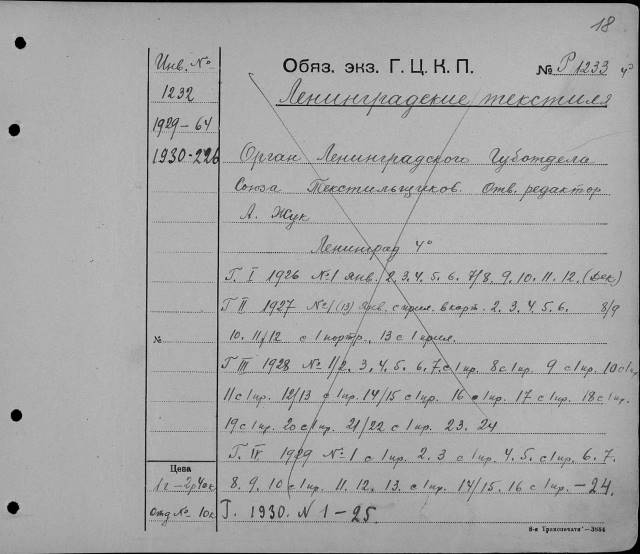 18
Инв. №
Обяз. экз. Г. Ц. К. П.
№ Р 1233 4°
1232
Ленинградские текстиля
1929–64
1930-226
Орган Ленинградского Губотдела
Союза Текстильщиков. Отв. редактор
А. Жук
Ленинград 4°
Г. I 1926 №1 Янв. 2. 3. 4. 5. 6. 7/8. 9. 10. 11. 12. (Дек)
Г II 1927 №1 (13) Янв. с прил. 8 карт. 2. 3. 4. 5. 6. 8/9
№
10. 11/12 с 1 портр., 13 с 1 прил.
Г III 1928 № 1/2. 3. 4. 5. 6. 7. с 1 пр. 8 с 1 пр. 9 с 1 пр. 10 с 1 пр.
11 с 1 пр. 12/13 с 1 пр. 14/15 с 1 пр. 16 с 1 пр. 17 с 1 пр. 18 с 1 пр.
19 с 1 пр. 20 с 1 пр. 21/22 с 1 пр. 23. 24
Г. IV 1929 №1 с 1 пр. 2. 3 с 1 пр. 4. 5. с 1 пр. 6. 7.
Цена
1 г – 2р. 40к.
8. 9. 10 с 1 пр. 11. 12. 13. с 1 пр. 14/15. 16 с 1 пр. – 24.
отд № 10к
Г. 1930. N 1 – 25.
8-я Транспечати—3854